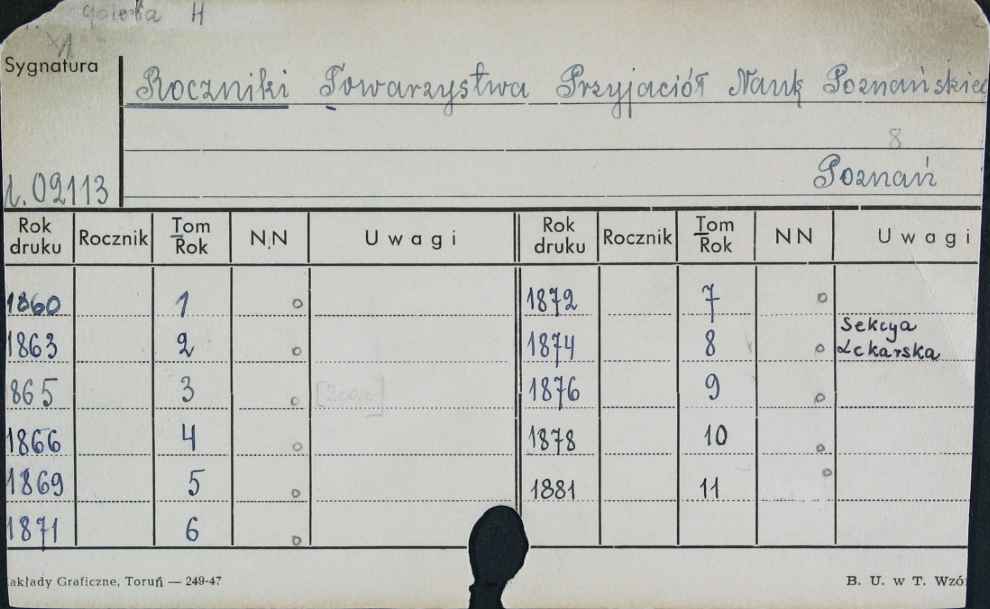 H
Sygnatura
Roczniki Towarzystwa Przyjaciół Nauk Poznańskie
8
Poznań
1. 09113
Rok druku Rocznik Tom Rok N.N Uwagi Rok druku Rocznik Tom Rok NN Uwagi
1860 1 1872 7
1863 2 1874 8 Sekcya Lekarska
865 3 1876 9
1866 4 1878 10
1869 5 1881 11
1871 6
akłady Graficzne, Toruń — 249-47 B. U. w T. Wzó